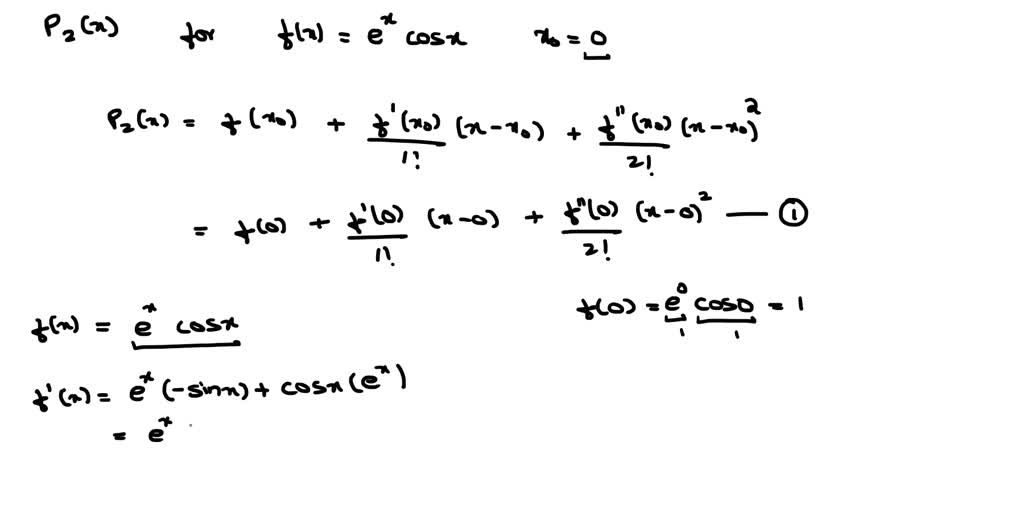 P₂(x) for f(x) = eˣ cosx x₀ = 0
P₂(x) = f(x₀) + f'(x₀)/1! (x-x₀) + f''(x₀)/2! (x-x₀)²
= f(0) + f'(0)/1! (x-0) + f''(0)/2! (x-0)² — ①
f(0) = e⁰ cos0 = 1
1 1
f(x) = eˣ cosx
f'(x) = eˣ(-sinx) + cosx(eˣ)
= eˣ